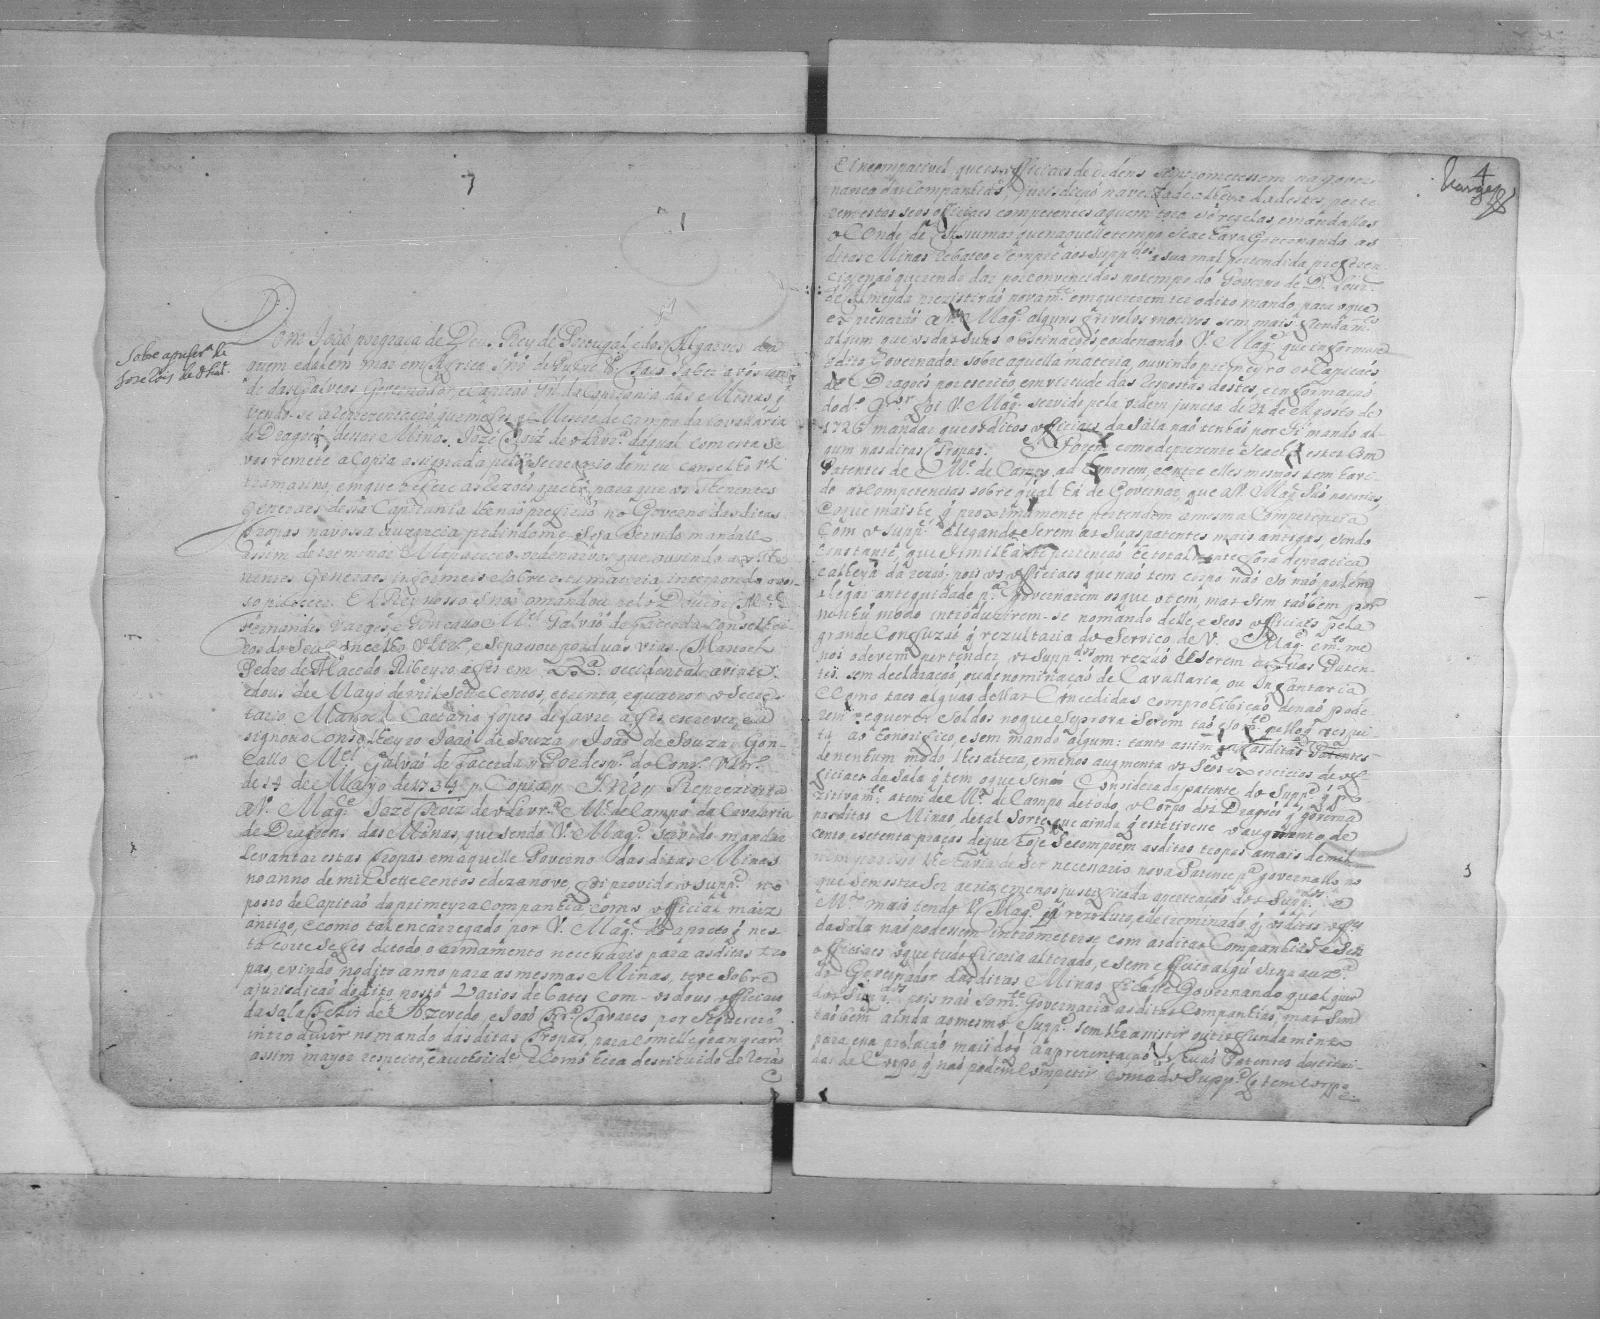 Sobre a prefer.ª de
Joze Roiz de Oliv.ra
Dom João por graça de Deus Rey de Portugal e dos Algarves da
quem e dalem mar em Africa Snr de Guiné &.ª Faço saber a vos
de das Galveas Governador e Capitaõ G.l da Capitania das Minas q
vendo-se a reprezentaçaõ que me fes o Mestre de campo da Cavallaria
de Dragoẽs dessas Minas, Jozé Roiz de Oliv.ra da qual com esta se
vos remete a Copia assignada pelo Secretario do meu Conselho Ul
tramarino, em que refere as rezoẽs que há para que os Thenentes
Generaes dessa Capitania lhe naõ prefiraõ no Governo das ditas
Tropas na vossa auzencia pedindome seja servido mandallo
assim determinar. Me pareceo ordenarvos, que ouvindo aos The
nentes Generaes informeis sobre esta materia, interpondo o vos
so parecer. El Rey nosso Snr o mandou pelos Doutores M.el
Fernandes Varges, e Gonçallo M.el Galvaõ de Lacerda Conselhei
ros do Seu Concelho Ultr.o, e se passou por duas vias. Manoel
Pedro de Macedo Ribeyro a fes em Lx.ª occidental a vinte
e dous de Mayo de mil sette centos, e trinta, e quatro. O Secre
tario Manoel Caetano Lopes de Lavre a fes escrever, e as
signou o Conselheyro Joaõ de Souza // Joaõ de Souza // Gon
çallo M.el Galvaõ de Lacerda // Por desp.o do Cons.o Ultr.o
de 14 de Mayo de 1734 // Copia // Snr // Reprezenta
a V. Mag.e Jozé Roiz de Oliv.ra M.e de Campo da Cavalaria
de Dragoens das Minas, que sendo V. Mag.e servido mandar
levantar estas tropas em aquelle Governo das ditas Minas
no anno de mil sette centos e dezanove, foi provido o supp.e no
posto de Capitaõ da primeyra companhia como official máiz
antigo, e como tal encarregado por V. Mag.e do apresto q nes
ta corte se fes de todo o armamento necessario para as ditas tro
pas, e vindo no dito anno para as mesmas Minas, teve sobre
a jurisdiçaõ do dito posto varios debates com os dous officiaes
da sala Felix de Azevedo, e Joaõ Fr.ª Tavares por se quererẽ
introduzir no mando das ditas Tropas, para com elle grangearẽ
assim mayor respeito, e authorid.e e como hera destituido de rezaõ
e
4
Varges
E incompativel que os officiaes de ordens se intrometessem na gover
nança das Companhias, e jurisdiçaõ na verdade alheya da destes, por te
rem estas seos officiaes competentes a quem toca só regelas, e mandallas
o Conde de Assumar que naquelle tempo se achava Governando as
ditas Minas rebateo sempre aos Supp.dos a sua mal pertendida preten
çaõ e naõ querendo dar por convencidos no tempo do Governo de D. Lour.ço
de Almeyda prezistiraõ novam.te em quererem ter o dito mando, para o que
exposeraõ a V. Mag.e alguns frivolos motivos sem mais fundam.to
algum que os das suas obstinaçoẽs e ordenando V. Mag.e que informase
o dito Governador sobre aquella materia, ouvindo primeyro os Capitaẽs
de Dragoẽs por escrito, em virtude das respostas destes, e informaçaõ
do d.o G.or foi V. Mag.e servido pela ordem juncta de 21 de Agosto de
1726 mandar que os ditos officiaes da Sala naõ tenhaõ por si mando al
gum nas ditas Tropas. Porem como de prezente se achaõ estes com
Patentes de M.e de Campo ad honorem, e entre elles mesmos tem havi
do as competencias sobre qual há de Governar, que a V. Mag.e saõ notorias,
e o que mais he, q proximamente pertendem a mesma competencia
com o supp.e allegando serem as suas patentes mais antigas, sendo
constante, que similhante pertençaõ he totalmente fora da pratica
e alheya da rezaõ, pois os officiaes que naõ tem corpo naõ so naõ podem
allegar antiguidade p.ª governarem os que o tem, mas sim taõ bem por
nenhũ modo introduzirem-se no mando delle, e seos officiaes pela
grande Confuzaõ q rezultaria do Serviço de V. Mag.e
nem o devem pertender os Supp.dos em rezaõ de serem as suas Paten-
tes sem declaraçaõ, ou denominaçaõ de Cavallaria, ou Infantaria
e como taes alguas dellas Concedidas com prohibiçaõ de naõ pode
rem requerer Soldos no que se prova serem taõ som.te pello respei
to ao honorifico, e sem mando algum: tanto assim q as ditas Patentes
de nenhum modo lhes altera, e menos augmenta os Seos exercicios de of
ficiaes da Sala q tem o que se naõ Considera da patente do Supp.e q he
pozitivam.e atem de M.e de Campo de todo o Corpo dos Dragoẽs q governa
nas ditas Minas de tal sorte que ainda q estivese o augmento de
cento, e setenta praças de que hoje se compoem as ditas tropas a mais de mil
nem por isso lhe havia de ser necessario nova Patente p.ª governallo no
que se mostra ser aeria e menos justificada a pertençaõ dos Supp.dos
M.to mais tendo V. Mag.e já rezoluto, e determinado q os ditos offes
da Sala naõ podessem intrometerse com as ditas Companhias e seos
officiaes o que tudo ficaria alterado, e sem effeito algũ se na auz.ª
do Governador das ditas Minas ficasse Governando qual quer
dos Supp.dos pois naõ som.te Governaria as ditas Companhias, mas sim
taõ bem ainda ao mesmo Supp.e sem lhe assistir outro fundamento
para esta prelaçaõ mais do q a aprezentaçaõ de suas Patentes destitui-
das de Corpo q naõ podem Competir com a do Supp.e q tem corpo
e